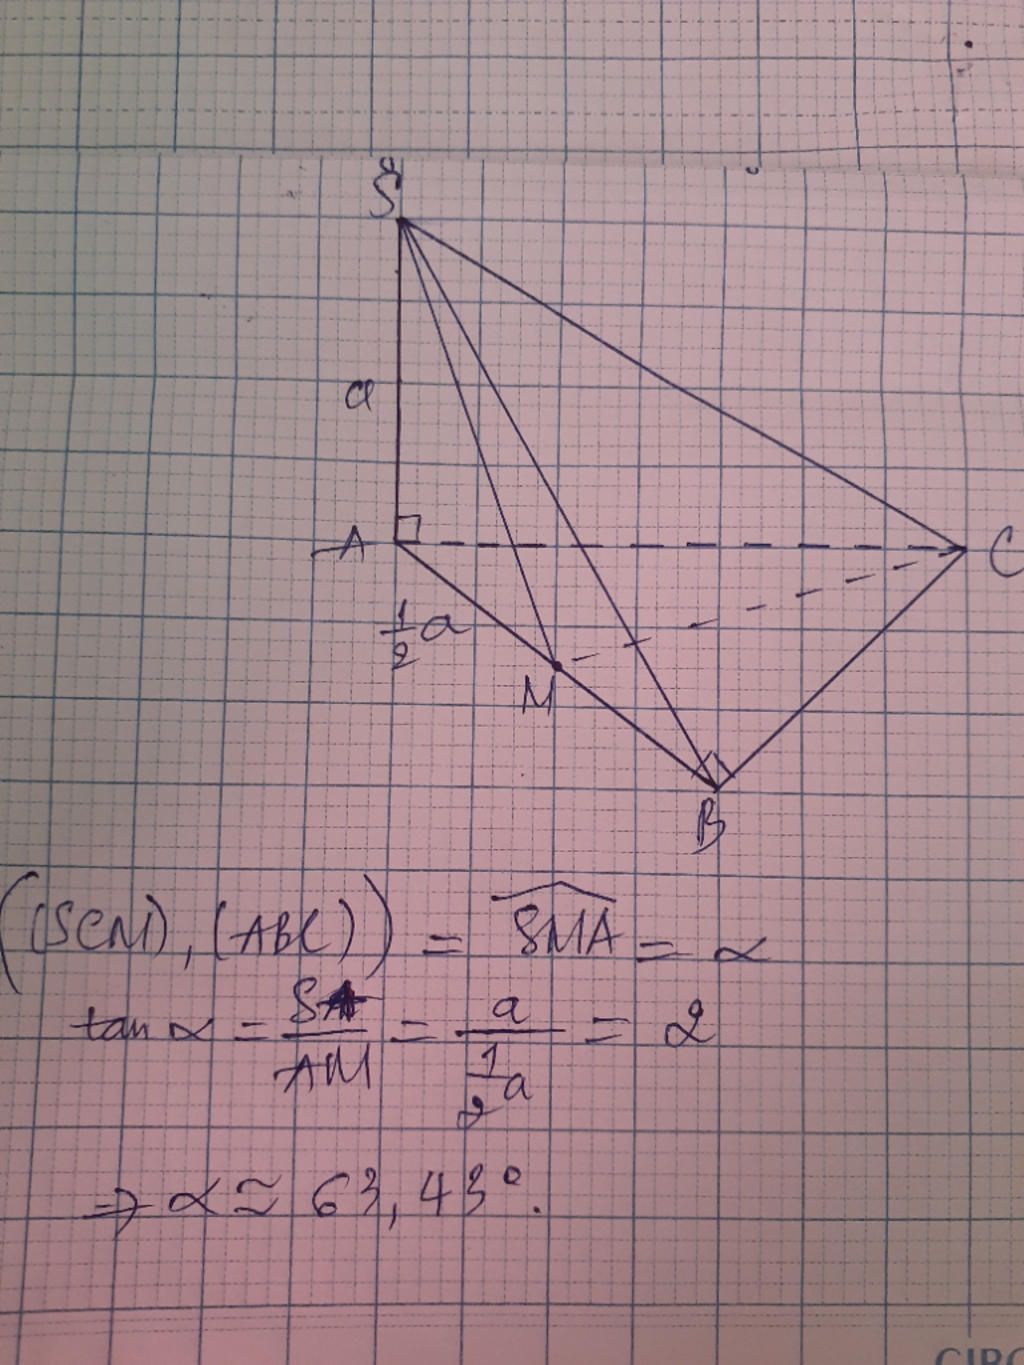 S
a
A
C
1/2 a
M
B
((SCM), (ABC)) = \widehat{SMA} = α
tan α = SA/AM = a/(1/2 a) = 2
⇒ α ≃ 63,43°.